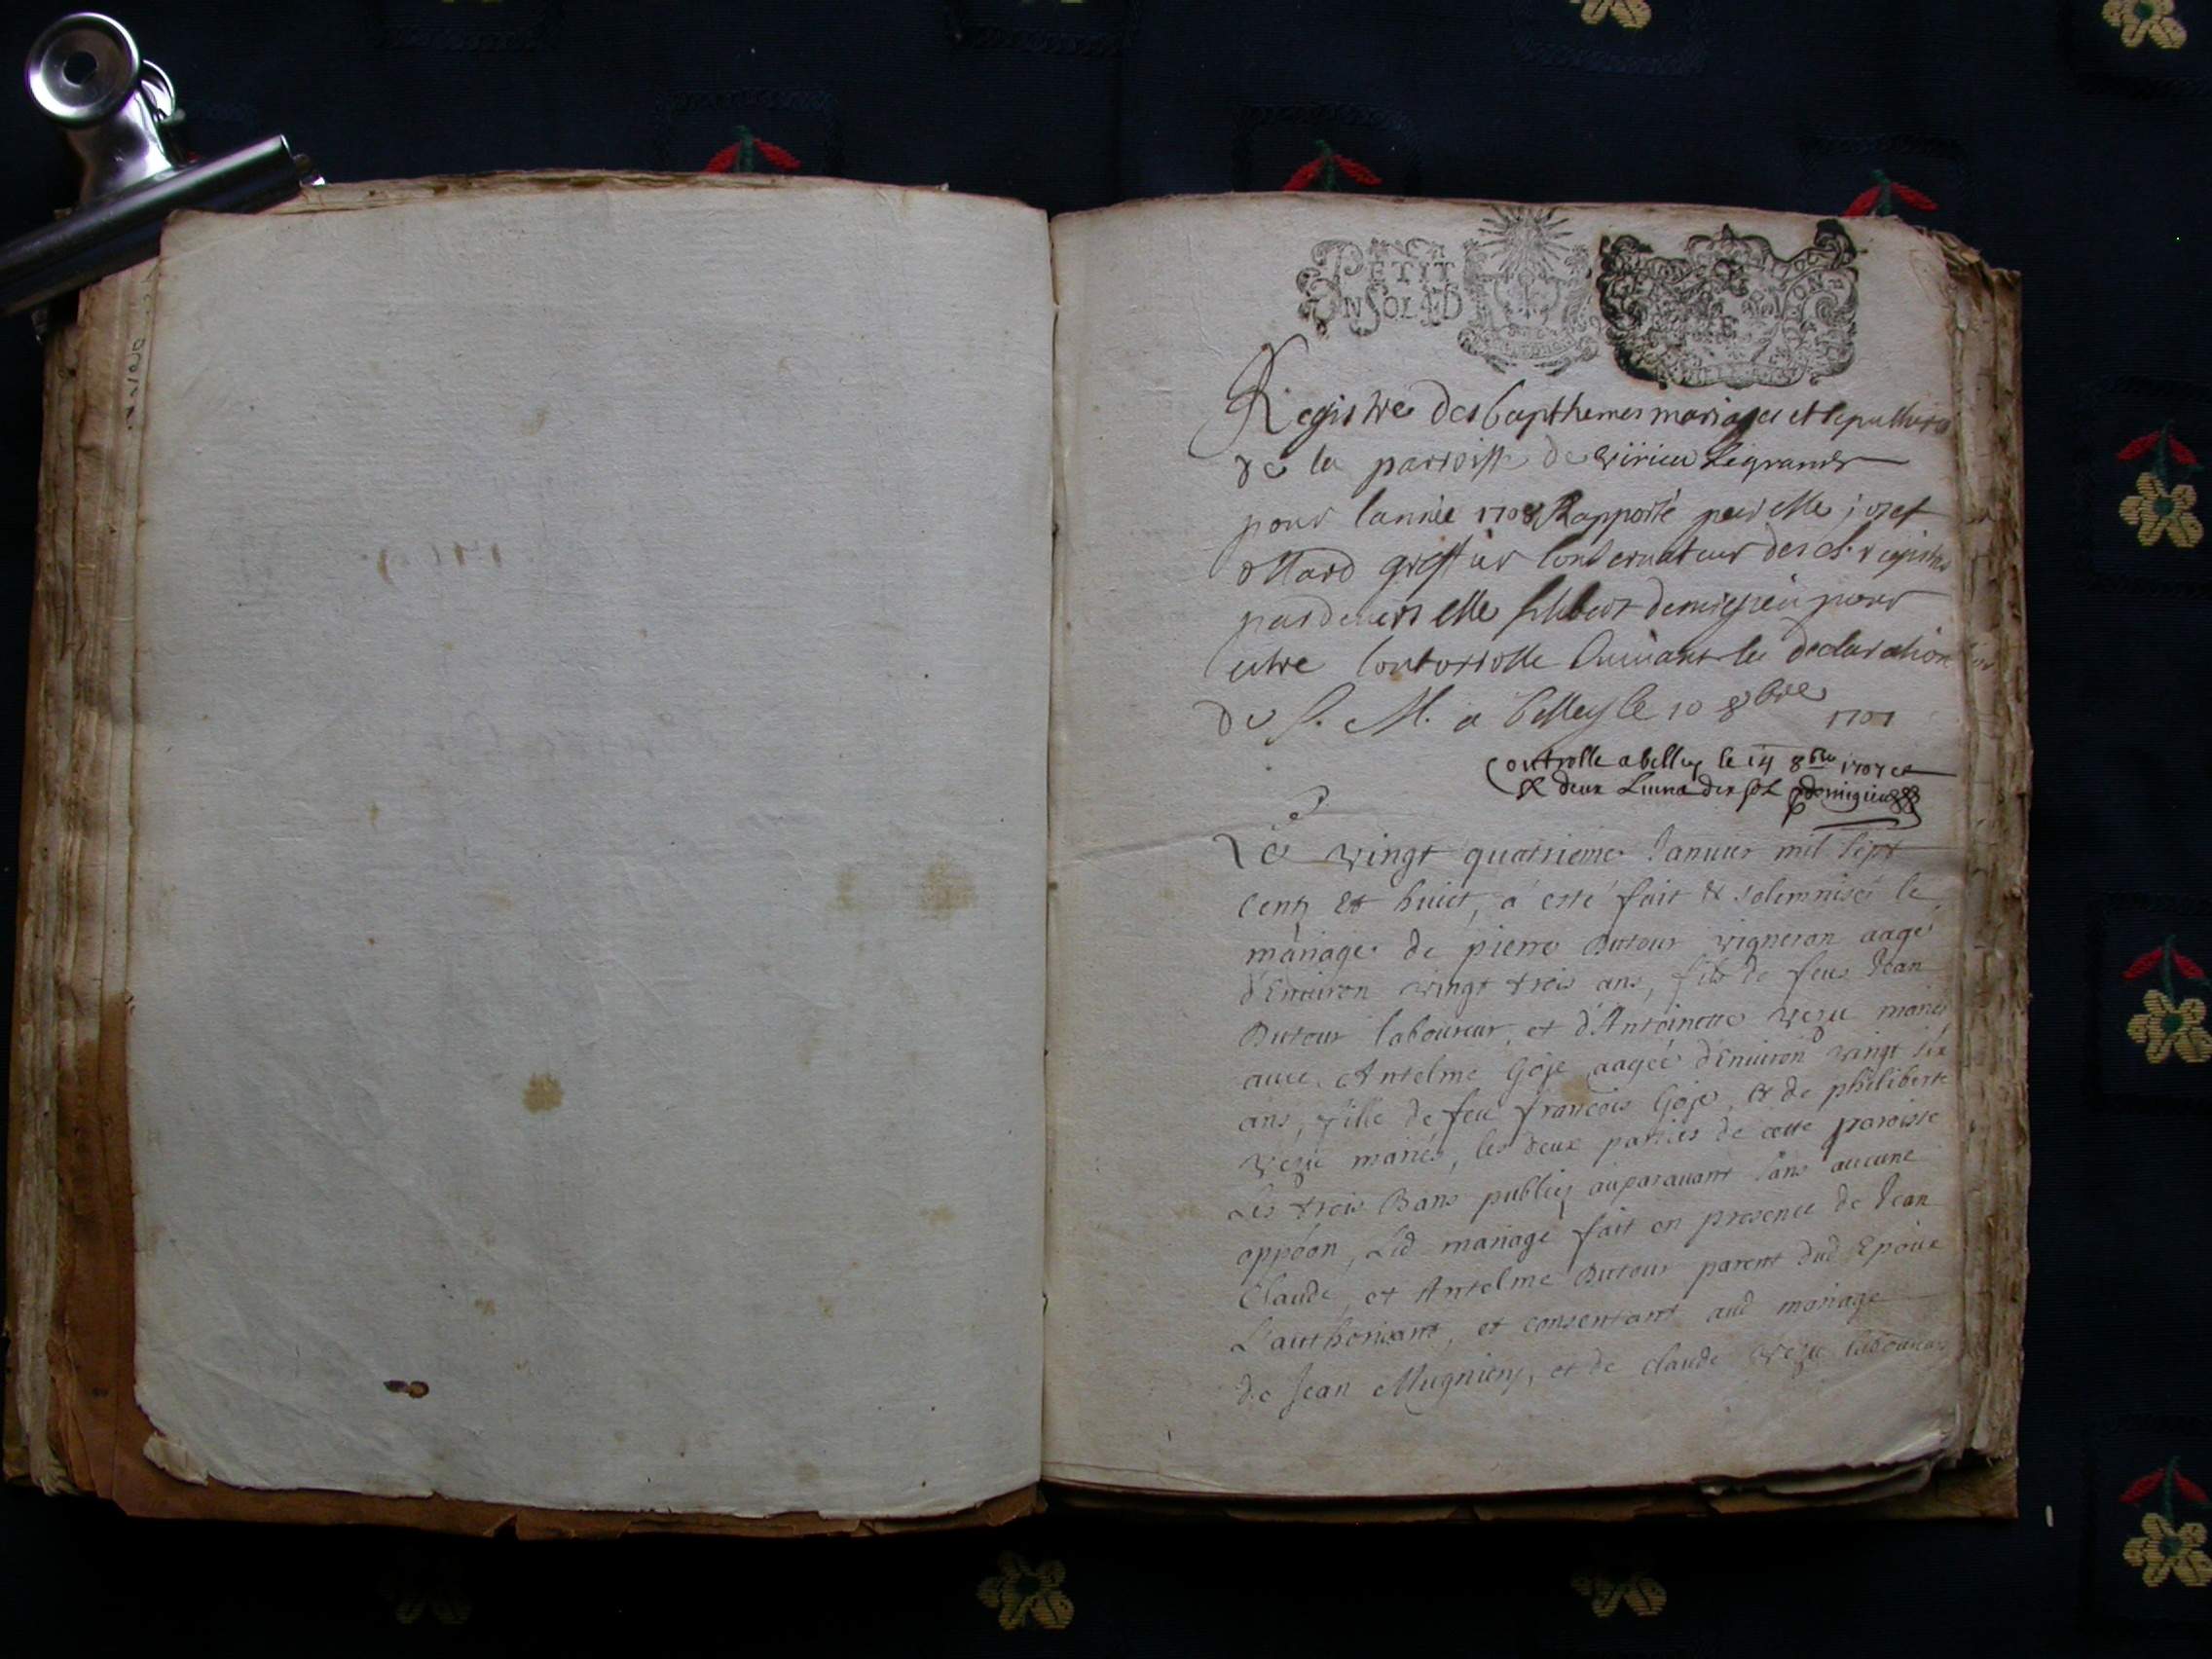 PETIT
UN SOL 4 D
Registre des bapthemes mariages et sepultures
de la parroisse de virieu Legrand
pour lannée 1708 Rapporté par Me josef
greffier Conservateur des registres
pardevers Me
estre Controrolle suivant la declaration
de S. M. a belley le 10 8bre 1707
Controlle a belley le 14 8bre 1707
deux
Le vingt quatrieme Januier mil sept
cents et huict, a esté fait & solemnisé le
mariage de pierre Dutour vigneron aagé
d'Enuiron vingt trois ans, fils de feus Jean
Dutour laboureur, et d'Antoinette vezu mariés
auec Antelme Goje aagée d'Enuiron vingt six
ans, fille de feu francois Goje, & de philiberte
vezu mariés, les deux parties de cette paroisse
Les trois Bans publiés auparauant sans aucune
oppôon, Led mariage fait en presence de Jean
Claude, et Antelme Dutour parent dud Epoux
L'authorisant, et consentant aud mariage
de Jean Mugniery, et de claude vezu laboureurs